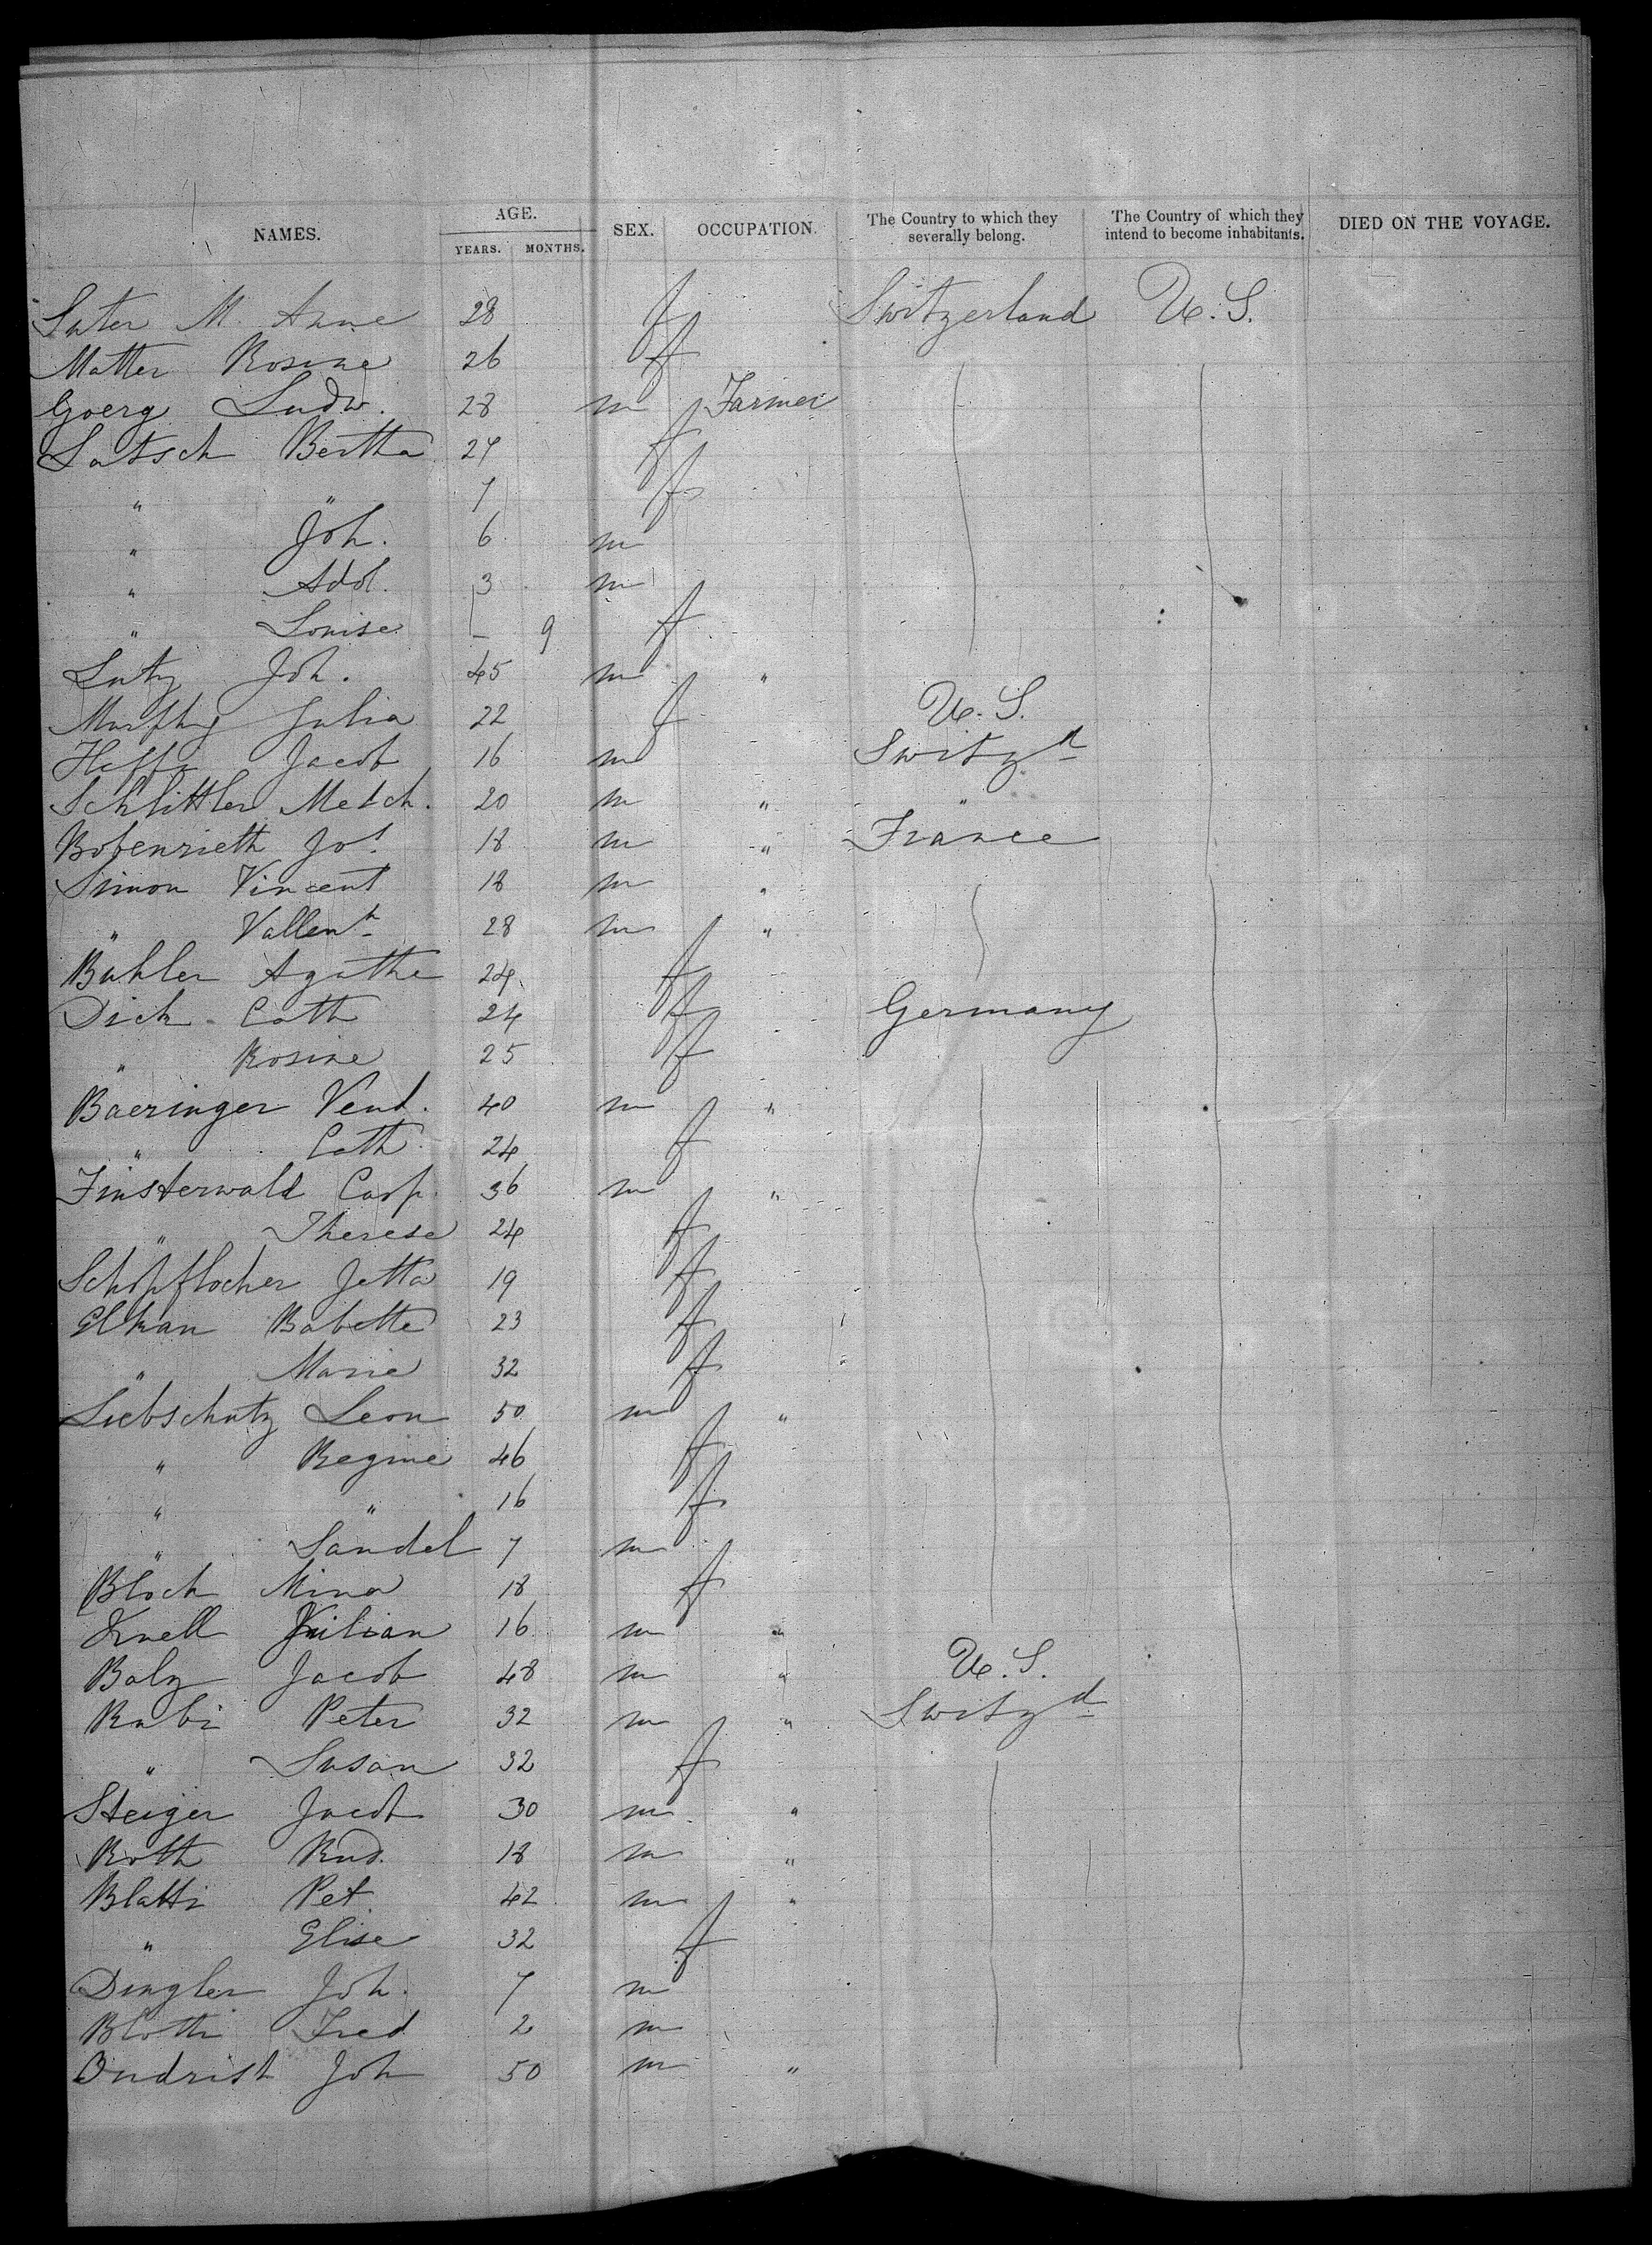 NAMES. AGE. YEARS. MONTHS. SEX. OCCUPATION. The Country to which they severally belong. The Country of which they intend to become inhabitants. DIED ON THE VOYAGE.
Suter M. Anne 28 f Switzerland U.S.
Matter Rosine 26 f
Goerg Ludw. 28 m Farmer
Latsch Bertha 24 f
" " 7 f
" Joh. 6 m
" Adol. 3 m
" Louise – 9 f
Lutz Joh. 45 m "
Murphy Julia 22 f U.S.
Hefty Jacob 16 m Switzd
Schlittler Melch. 20 m " "
Bobenrieth Jos. 18 m " France
Simon Vincent 18 m "
" Vallentn 28 m "
Buhler Agathe 24 f
Dick Cath 24 f Germany
" Rosine 25 f
Baeringer Vend. 40 m "
" Cath 24 f
Finsterwald Casp. 36 m "
" Therese 24 f
Schopflocher Jetta 19 f
Elkan Babette 23 f
" Marie 32 f
Liebschutz Leon 50 m "
" Regine 46 f
" " 16 f
" Sandel 7 m
Bloch Mina 18 f
Knell Kilian 16 m "
Balz Jacob 48 m " U.S.
Rubi Peter 32 m " Switzd
" Susan 32 f
Steiger Jacob 30 m "
Roth Rud. 18 m "
Blatti Pet. 42 m "
" Elise 32 f
Dingler Joh. 7 m
Blotti Fred 2 m
Budrist Joh 50 m "